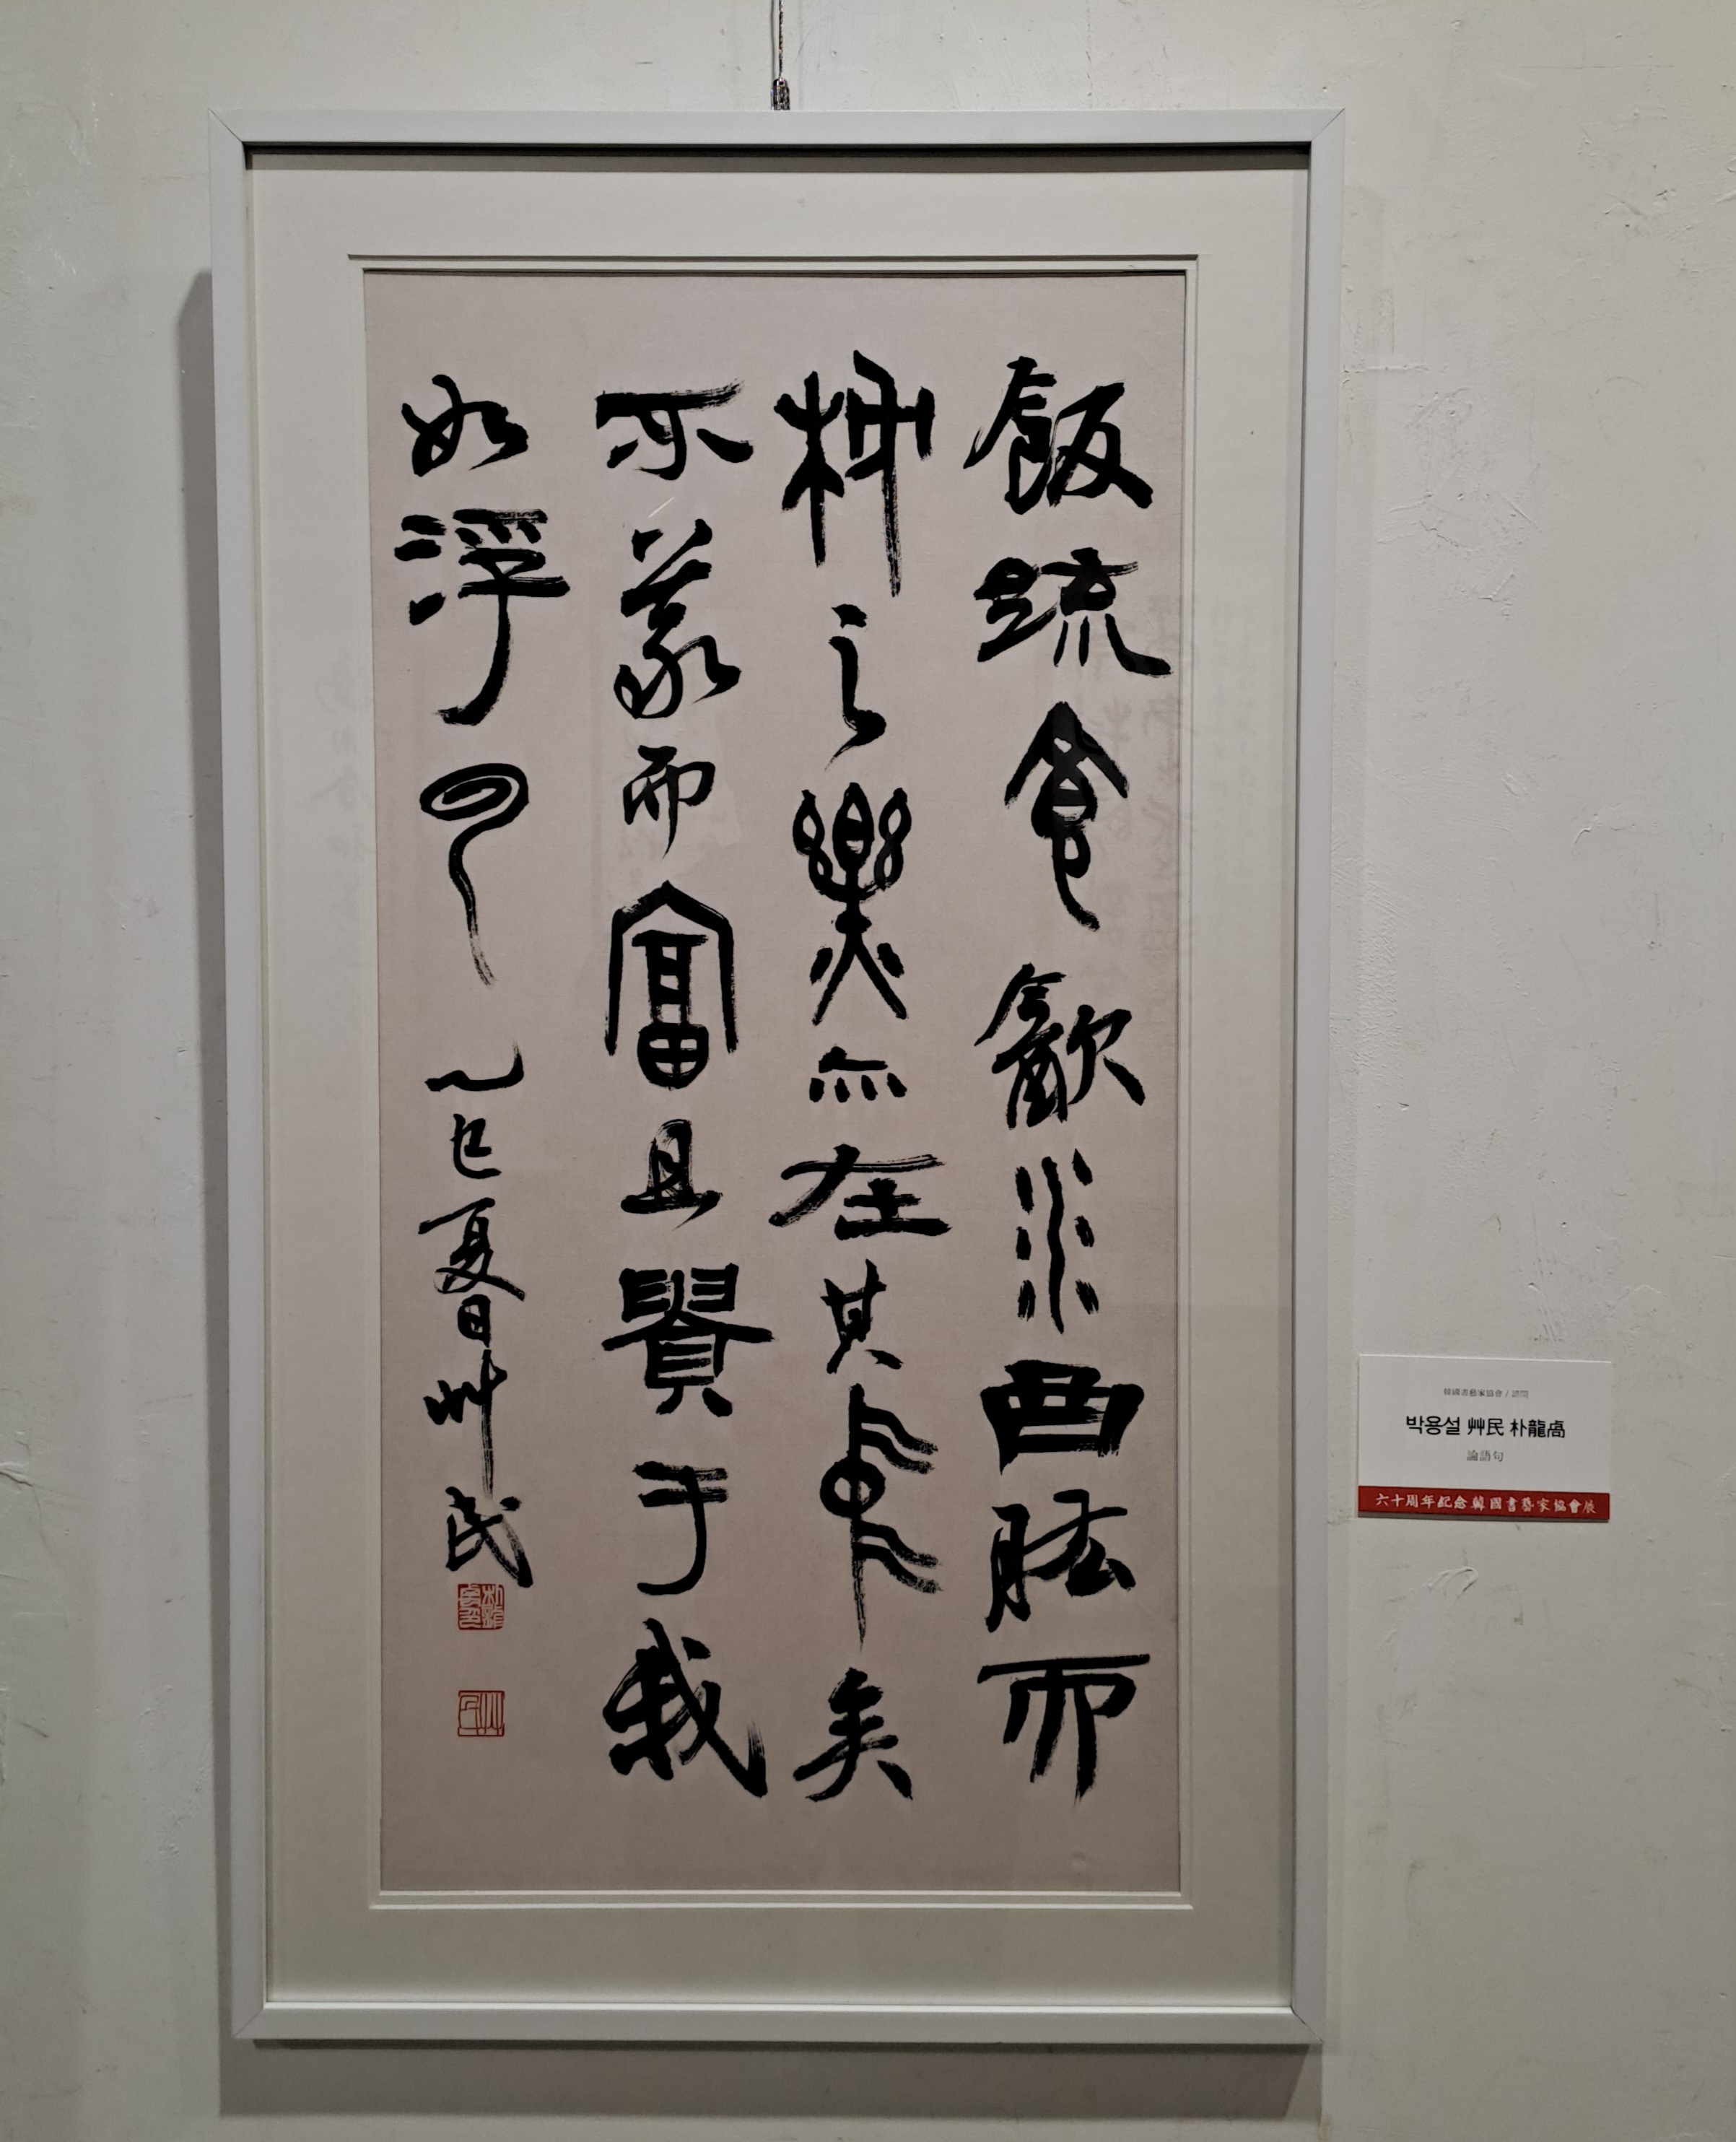 飯疏食㱃水曲肱而
枕之樂亦在其中矣
不義而富且貴于我
如浮云 乙巳夏日艸民
朴龍卨印
艸民
韓國書藝家協會 / 諮問
박용설 艸民 朴龍卨
論語句
六十周年記念韓國書藝家協會展